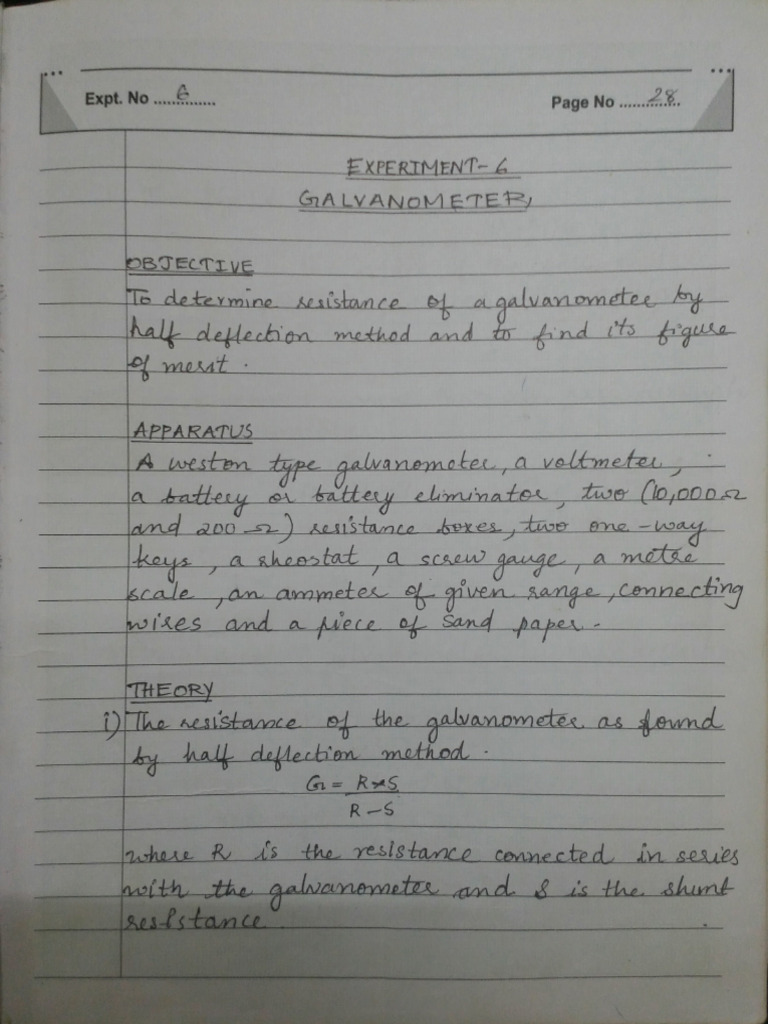 Expt. No ...6...
Page No ...28...
EXPERIMENT-6
GALVANOMETER
OBJECTIVE
To determine resistance of a galvanometer by
half deflection method and to find its figure
of merit.
APPARATUS
A weston type galvanometer, a voltmeter,
a battery or battery eliminator, two (10,000Ω
and 200Ω) resistance boxes, two one-way
keys, a rheostat, a screw gauge, a metre
scale, an ammeter of given range, connecting
wires and a piece of sand paper.
THEORY
i) The resistance of the galvanometer as found
by half deflection method.
G = R×S
R-S
where R is the resistance connected in series
with the galvanometer and S is the shunt
resistance.